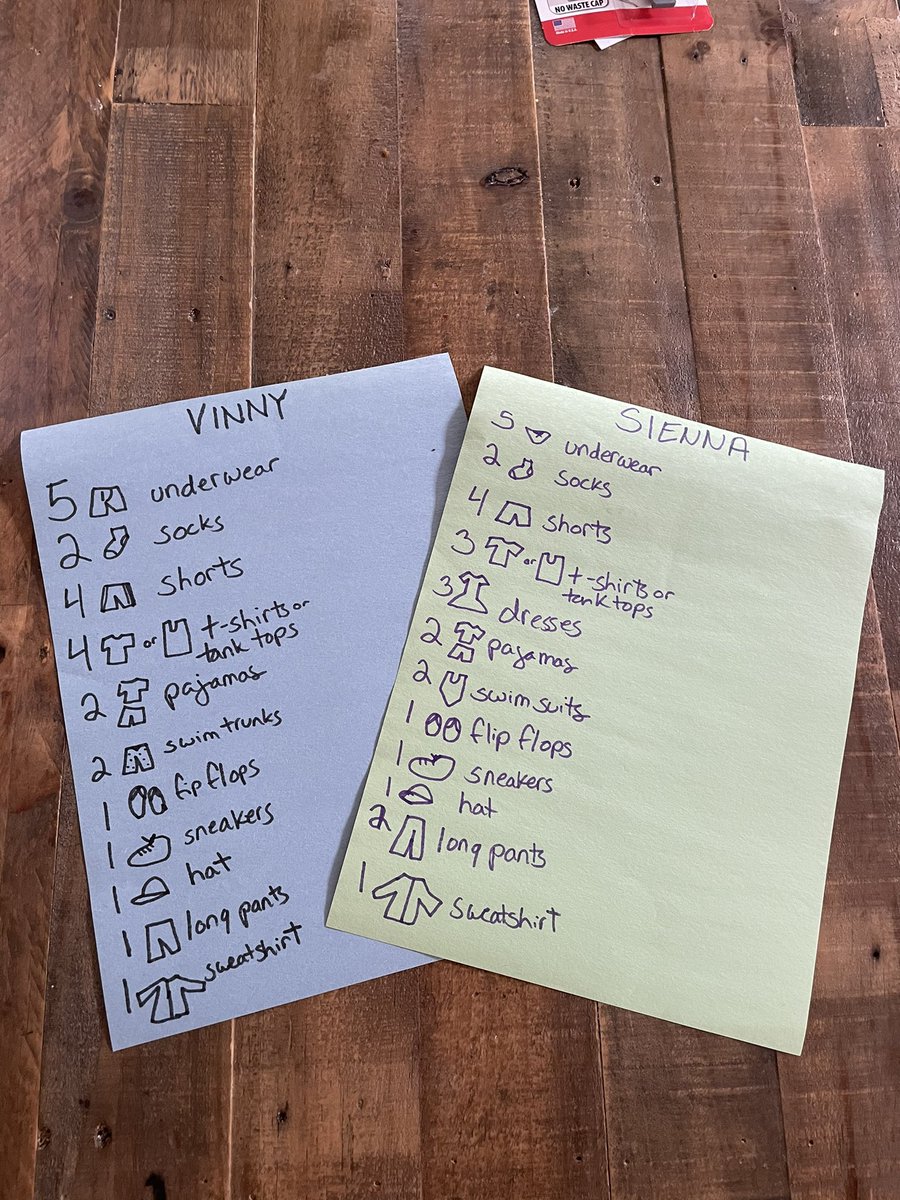 NO WASTE CAP
Made in U.S.A.
VINNY
5 underwear
2 socks
4 shorts
4 or t-shirts or
tank tops
2 pajamas
2 swim trunks
1 flip flops
1 sneakers
1 hat
1 long pants
1 sweatshirt
SIENNA
5 underwear
2 socks
4 shorts
3 or t-shirts or
tank tops
3 dresses
2 pajamas
2 swim suits
1 flip flops
1 sneakers
1 hat
2 long pants
1 sweatshirt